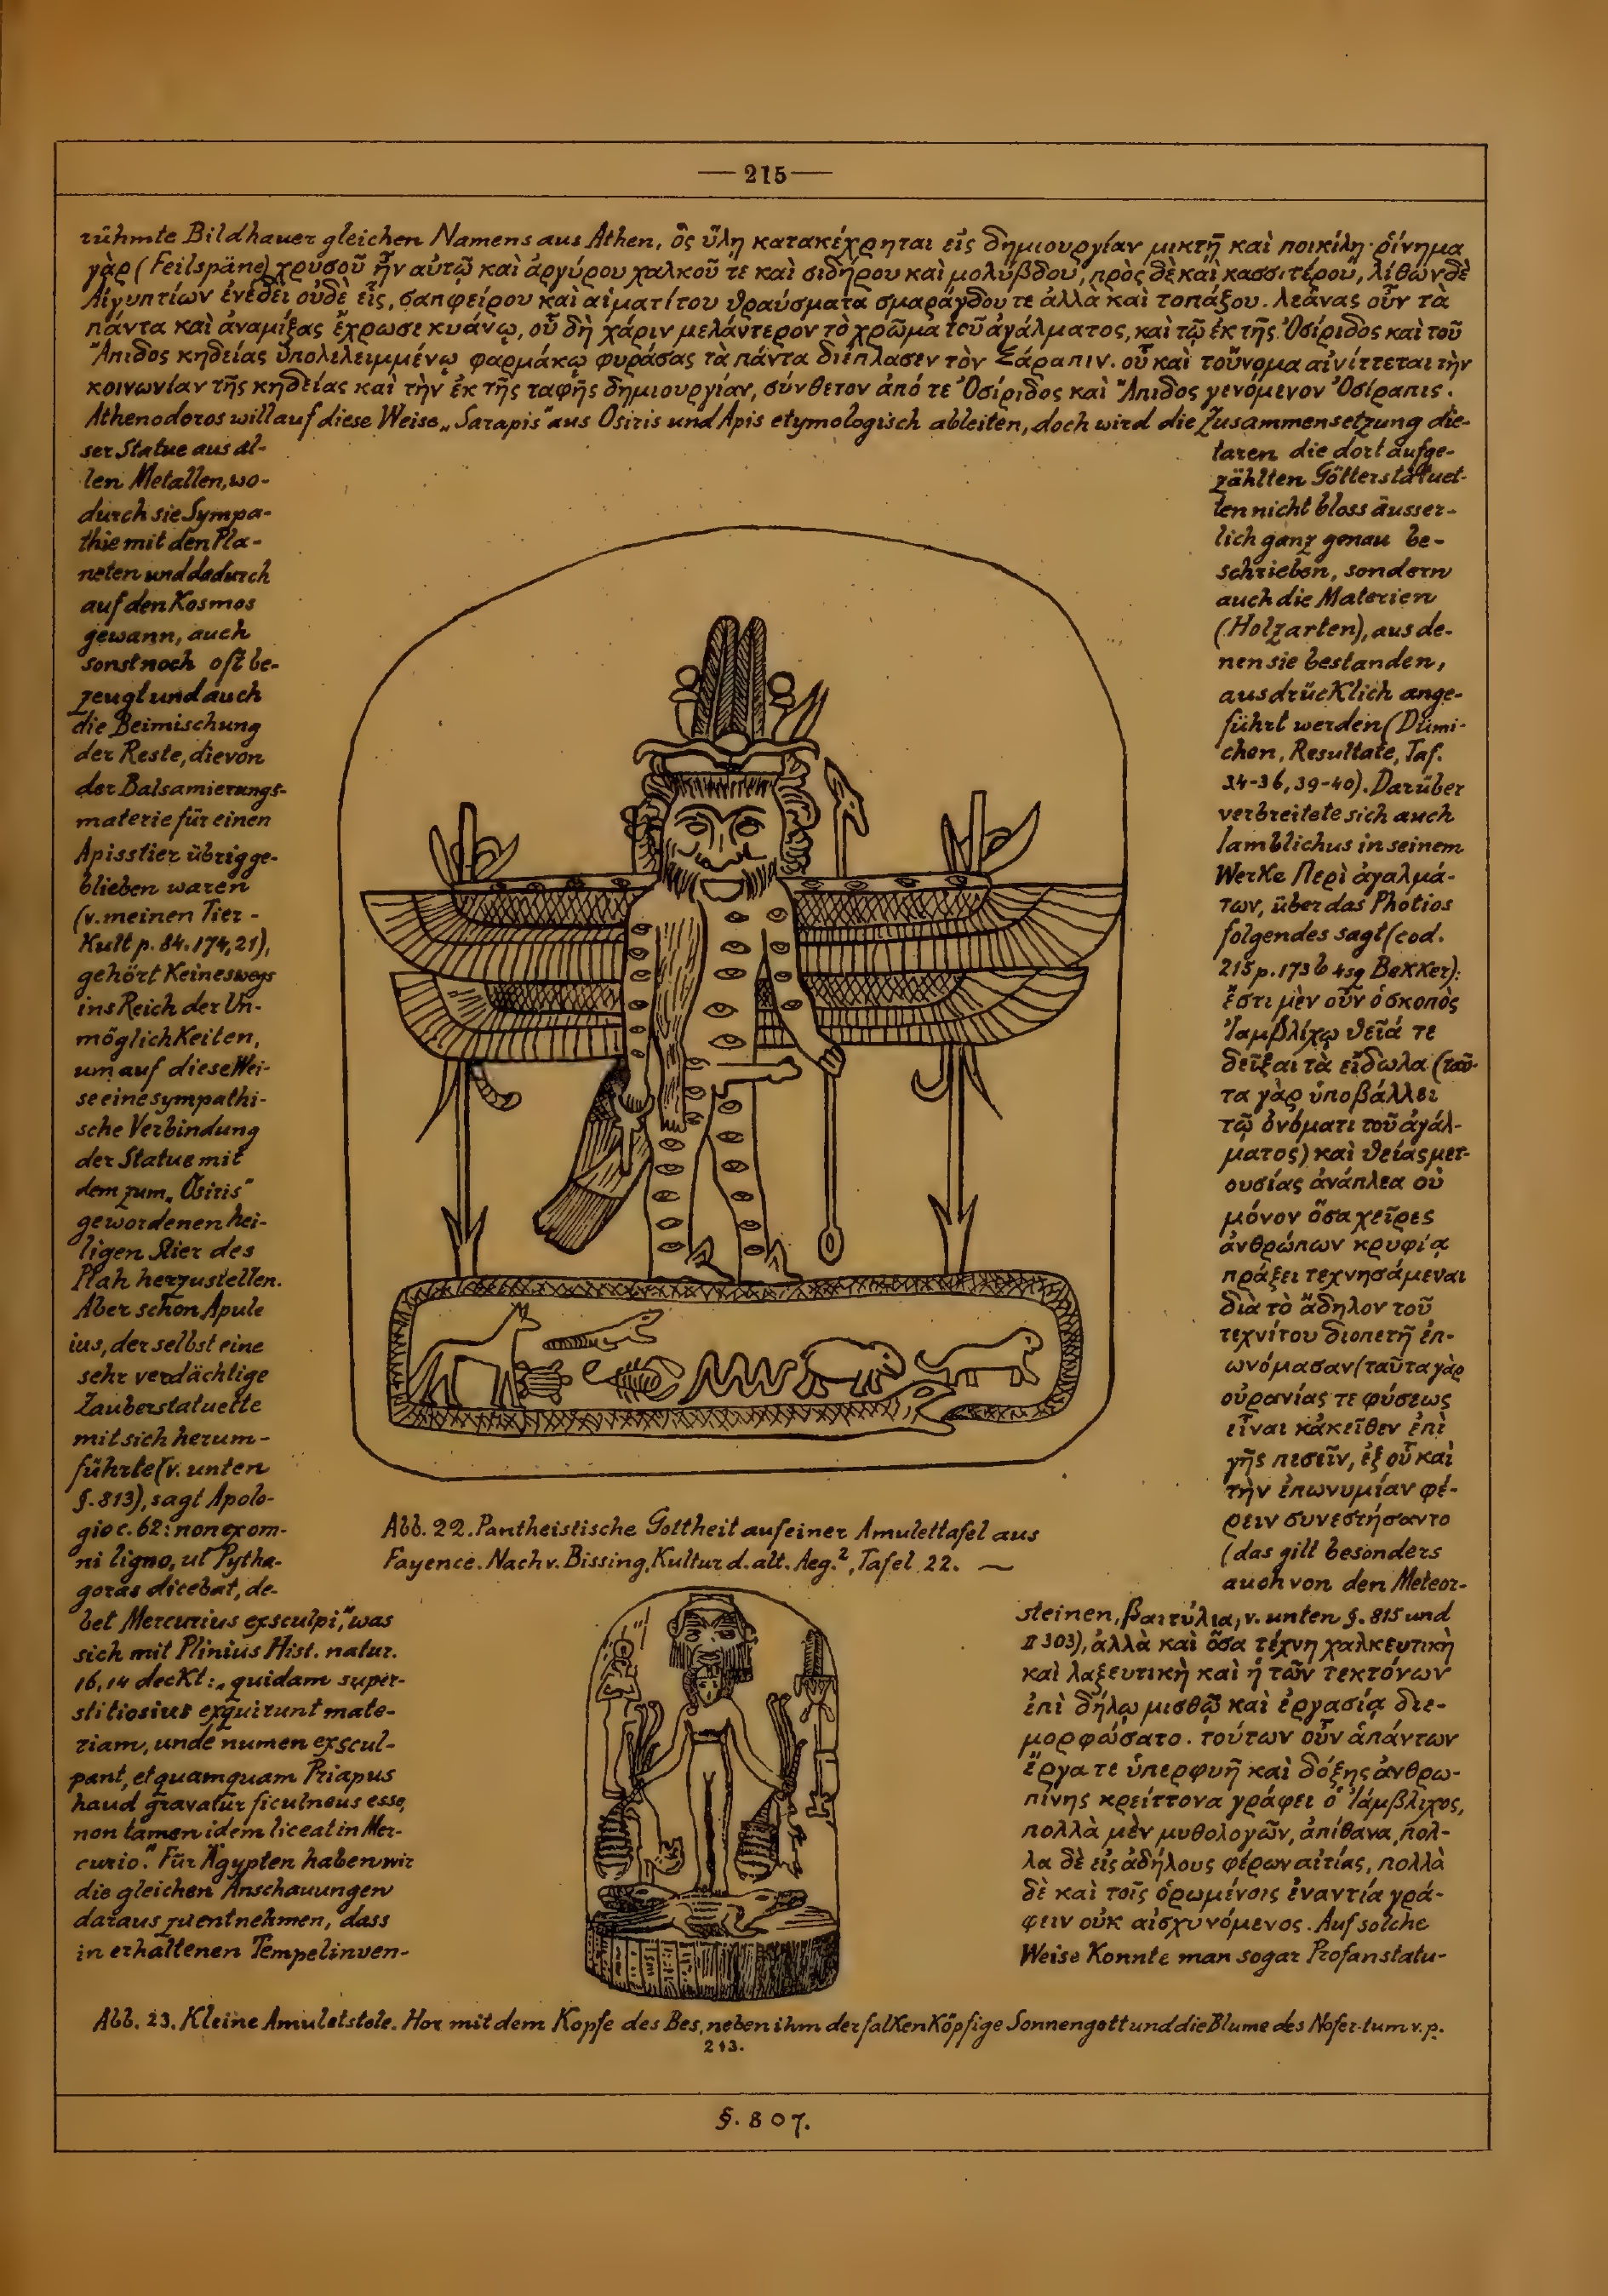 — 215 —
rühmte Bildhauer gleichen Namens aus Athen, ὃς ὕλῃ κατακέχρηται εἰς δημιουργίαν μικτῇ καὶ ποικίλῃ· ῥίνημα
γὰρ (Feilspäne) χρυσοῦ ἦν αὐτῷ καὶ ἀργύρου χαλκοῦ τε καὶ σιδήρου καὶ μολύβδου, πρὸς δὲ καὶ κασσιτέρου, λίθων δὲ
Αἰγυπτίων ἐνέδει οὐδὲ εἷς, σαπφείρου καὶ αἱματίτου θραύσματα σμαράγδου τε ἀλλὰ καὶ τοπάζου. λεάνας οὖν τὰ
πάντα καὶ ἀναμίξας ἔχρωσε κυάνῳ, οὗ δὴ χάριν μελάντερον τὸ χρῶμα τοῦ ἀγάλματος, καὶ τῷ ἐκ τῆς Ὀσίριδος καὶ τοῦ
Ἄπιδος κηδείας ὑπολελειμμένῳ φαρμάκῳ φυράσας τὰ πάντα διέπλασεν τὸν Σάραπιν. οὗ καὶ τοὔνομα αἰνίττεται τὴν
κοινωνίαν τῆς κηδείας καὶ τὴν ἐκ τῆς ταφῆς δημιουργίαν, σύνθετον ἀπό τε Ὀσίριδος καὶ Ἄπιδος γενόμενον Ὀσίραπις.
Athenodoros will auf diese Weise „Sarapis" aus Osiris und Apis etymologisch ableiten, doch wird die Zusammensetzung die-
ser Statue aus al-
len Metallen, wo-
durch sie Sympa-
thie mit den Pla-
neten und dadurch
auf den Kosmos
gewann, auch
sonst noch oft be-
zeugt und auch
die Beimischung
der Reste, die von
der Balsamierungs-
materie für einen
Apisstier übrigge-
blieben waren
(v. meinen Tier-
Kult p. 84. 174, 21),
gehört Keineswegs
ins Reich der Un-
möglichKeiten,
um auf diese Wei-
se eine sympathi-
sche Verbindung
der Statue mit
dem zum „Osiris"
gewordenen hei-
ligen Stier des
Ptah herzustellen.
Aber schon Apule
ius, der selbst eine
sehr verdächtige
Zauberstatuette
mit sich herum-
führte (v. unten
§. 813), sagt Apolo-
gio c. 62: non ex om-
ni ligno, ut Pytha-
goras dicebat, de-
bet Mercurius exsculpi," was
sich mit Plinius Hist. natur.
16, 14 decKt: „quidam super-
stitiosius exquirunt mate-
riam, unde numen exscul-
pant, et quamquam Priapus
haud gravatur ficulneus esse,
non tamen idem liceat in Mer-
curio." Für Ägypten haben wir
die gleichen Anschauungen
daraus zu entnehmen, dass
in erhaltenen Tempelinven-
taren die dort aufge-
zählten Götterstatuet-
ten nicht bloss äusser-
lich ganz genau be-
schrieben, sondern
auch die Materien
(Holzarten), aus de-
nen sie bestanden,
ausdrücKlich ange-
führt werden (Dümi-
chen, Resultate, Taf.
34-36, 39-40). Darüber
verbreitete sich auch
Iamblichus in seinem
WerKe Περὶ ἀγαλμά-
των, über das Photios
folgendes sagt (cod.
215 p. 173 b 4sq BeKKer):
ἔστι μὲν οὖν ὁ σκοπὸς
Ἰαμβλίχῳ θεῖά τε
δεῖξαι τὰ εἴδωλα (ταῦ-
τα γὰρ ὑποβάλλει
τῷ ὀνόματι τοῦ ἀγάλ-
ματος) καὶ θείας μετ-
ουσίας ἀνάπλεα οὐ
μόνον ὅσα χεῖρες
ἀνθρώπων κρυφίᾳ
πράξει τεχνησάμεναι
διὰ τὸ ἄδηλον τοῦ
τεχνίτου διοπετῆ ἐπ-
ωνόμασαν (ταῦτα γὰρ
οὐρανίας τε φύσεως
εἶναι κἀκεῖθεν ἐπὶ
γῆς πεσεῖν, ἐξ οὗ καὶ
τὴν ἐπωνυμίαν φέ-
ρειν συνεστήσαντο
(das gilt besonders
auch von den Meteor-
steinen, βαιτύλια, v. unten §. 815 und
II 303), ἀλλὰ καὶ ὅσα τέχνη χαλκευτικὴ
καὶ λαξευτικὴ καὶ ἡ τῶν τεκτόνων
ἐπὶ δήλῳ μισθῷ καὶ ἐργασίᾳ διε-
μορφώσατο. τούτων οὖν ἁπάντων
ἔργα τε ὑπερφυῆ καὶ δόξης ἀνθρω-
πίνης κρείττονα γράφει ὁ Ἰάμβλιχος,
πολλὰ μὲν μυθολογῶν, ἀπίθανα, πολ-
λα δὲ εἰς ἀδήλους φέρων αἰτίας, πολλὰ
δὲ καὶ τοῖς ὁρωμένοις ἐναντία γρά-
φειν οὐκ αἰσχυνόμενος. Auf solche
Weise Konnte man sogar Profanstatu-
Abb. 22. Pantheistische Gottheit auf einer Amulettafel aus
Fayence. Nach v. Bissing, Kultur d. alt. Aeg.², Tafel 22. —
Abb. 23. Kleine Amuletstele. Hor mit dem Kopfe des Bes, neben ihm der falKenKöpfige Sonnengott und die Blume des Nofer-tum v. p.
213.
§. 807.